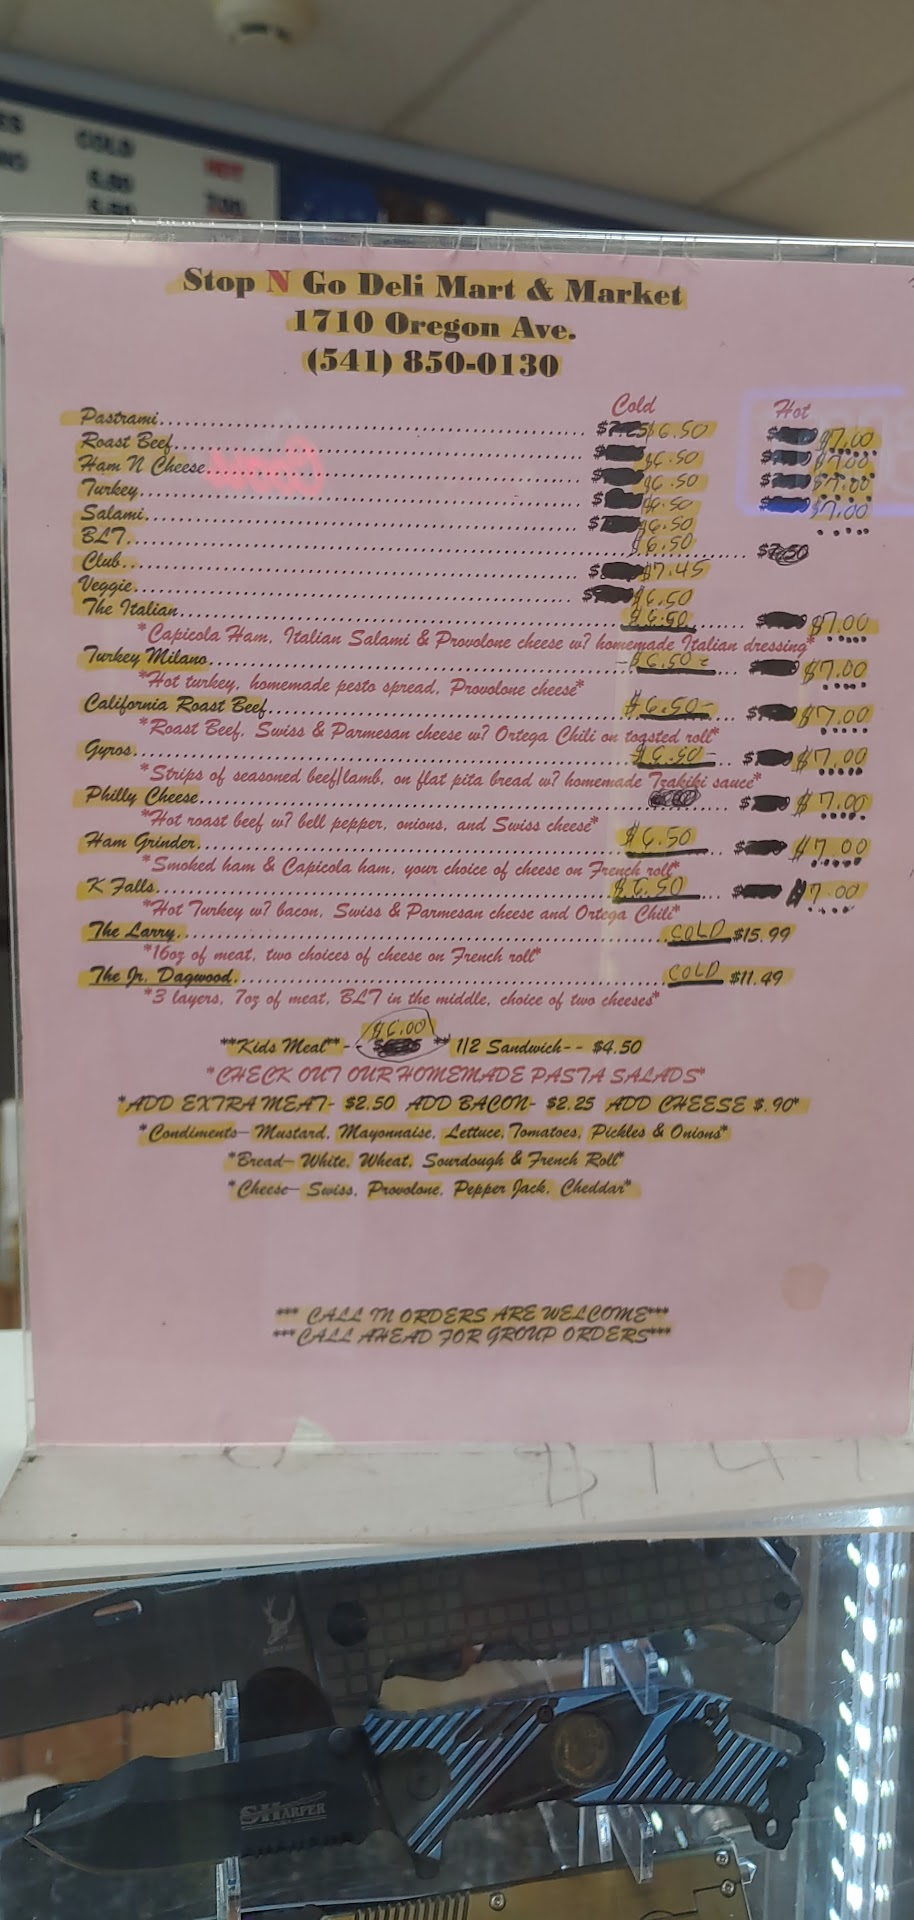 COLD HOT
6.50 7.00
Stop N Go Deli Mart & Market
1710 Oregon Ave.
(541) 850-0130
Cold Hot
Pastrami $6.50 $7.00
Roast Beef $6.50 $7.00
Ham N Cheese $6.50 $7.00
Turkey $6.50 $7.00
Salami $6.50
BLT $6.50 $7.50
Club $7.45
Veggie $6.50
The Italian $6.50 $7.00
*Capicola Ham, Italian Salami & Provolone cheese w? homemade Italian dressing*
Turkey Milano $6.50 $7.00
*Hot turkey, homemade pesto spread, Provolone cheese*
California Roast Beef $6.50 $7.00
*Roast Beef, Swiss & Parmesan cheese w? Ortega Chili on toasted roll*
Gyros $6.50 $7.00
*Strips of seasoned beef/lamb, on flat pita bread w? homemade Tzakiki sauce*
Philly Cheese $7.00
*Hot roast beef w? bell pepper, onions, and Swiss cheese*
Ham Grinder $6.50 $7.00
*Smoked ham & Capicola ham, your choice of cheese on French roll*
K Falls $6.50 $7.00
*Hot Turkey w? bacon, Swiss & Parmesan cheese and Ortega Chili*
The Larry COLD $15.99
*16oz of meat, two choices of cheese on French roll*
The Jr. Dagwood COLD $11.49
*3 layers, 7oz of meat, BLT in the middle, choice of two cheeses*
$6.00
**Kids Meal**-- ** 1/2 Sandwich-- $4.50
*CHECK OUT OUR HOMEMADE PASTA SALADS*
*ADD EXTRA MEAT- $2.50 ADD BACON- $2.25 ADD CHEESE $.90*
*Condiments- Mustard, Mayonnaise, Lettuce, Tomatoes, Pickles & Onions*
*Bread- White, Wheat, Sourdough & French Roll*
*Cheese- Swiss, Provolone, Pepper Jack, Cheddar*
*** CALL IN ORDERS ARE WELCOME***
***CALL AHEAD FOR GROUP ORDERS***
SHARPER